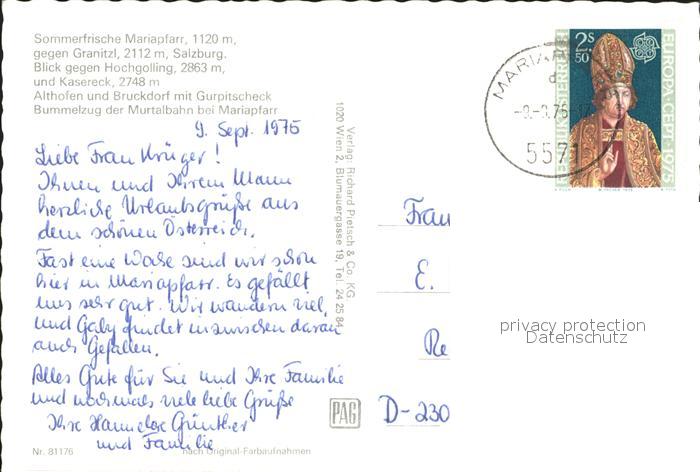 Sommerfrische Mariapfarr, 1120 m,
gegen Granitzl, 2112 m, Salzburg.
Blick gegen Hochgolling, 2863 m,
und Kasereck, 2748 m
Althofen und Bruckdorf mit Gurpitscheck
Bummelzug der Murtalbahn bei Mariapfarr
9. Sept. 1975
Liebe Frau Krüger!
Ihnen und Ihrem Mann
herzliche Urlaubsgrüße aus
dem schönen Österreich.
Fast eine Woche sind wir schon
hier in Mariapfarr. Es gefällt
uns sehr gut. Wir wandern viel,
und Gaby findet inzwischen daran
auch Gefallen.
Alles Gute für Sie und Ihre Familie
und nochmals viele liebe Grüße
Ihre Hannelore Günther
und Familie
Nr. 81176
nach Original-Farbaufnahmen
Verlag: Richard Pietsch & Co. KG
1020 Wien 2, Blumauergasse 19, Tel. 24 25 84
PAG
Frau
E.
Re
D-230
2s
50
REPUBLIK ÖSTERREICH
EUROPA CEPT 1975
MARIAPFARR
5571
privacy protection
Datenschutz